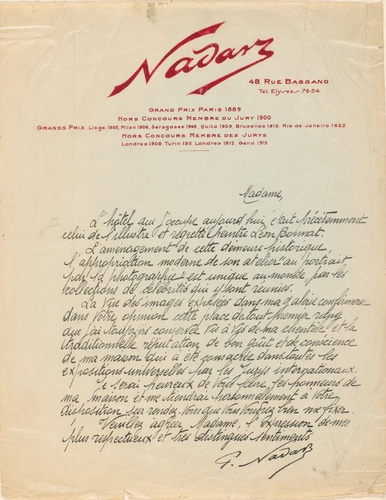 Nadar
48, RUE BASSANO
Tel: Elysées 76-54
GRAND PRIX PARIS 1889
HORS CONCOURS MEMBRE DU JURY 1900
GRANDS PRIX: Liège 1905, Milan 1906, Saragosse 1908, Quito 1909, Bruxelles 1910, Rio de Janeiro 1922
HORS CONCOURS MEMBRE DES JURYS
Londres 1908, Turin 1911, Londres 1912, Gand 1913
Madame,
L'hôtel que j'occupe aujourd'hui, était précédemment
celui de l'illustre et regretté Peintre Léon Bonnat.
L'aménagement de cette demeure historique,
l'appropriation moderne de son atelier au portrait
par la photographie est unique au monde par les
collections de célébrités qui y sont réunies.
La Vue des images exposées dans ma galerie confirmera
dans votre opinion cette place de tout premier rang
que j'ai toujours conservée vis à vis de ma clientèle et la
traditionnelle réputation de bon goût et de conscience
de ma maison qui a été consacrée dans toutes les
expositions universelles par les Jurys internationaux.
Je serai heureux de vous faire, les honneurs de
ma maison et me tiendrai personnellement à votre
disposition sur rendez vous que vous voudrez bien me fixer.
Veuillez agréer Madame, l'expression de mes
plus respectueux et très distingués sentiments
P. Nadar